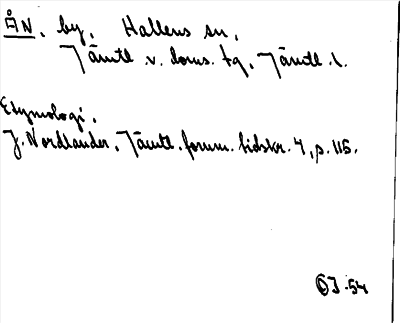 ÅN, by, Hallens sn,
Jämtl. v. doms. tg, Jämtl. l.
Etymologi.
J. Nordlander, Jämtl. fornm. tidskr. 4, p. 115.
OJ. 54